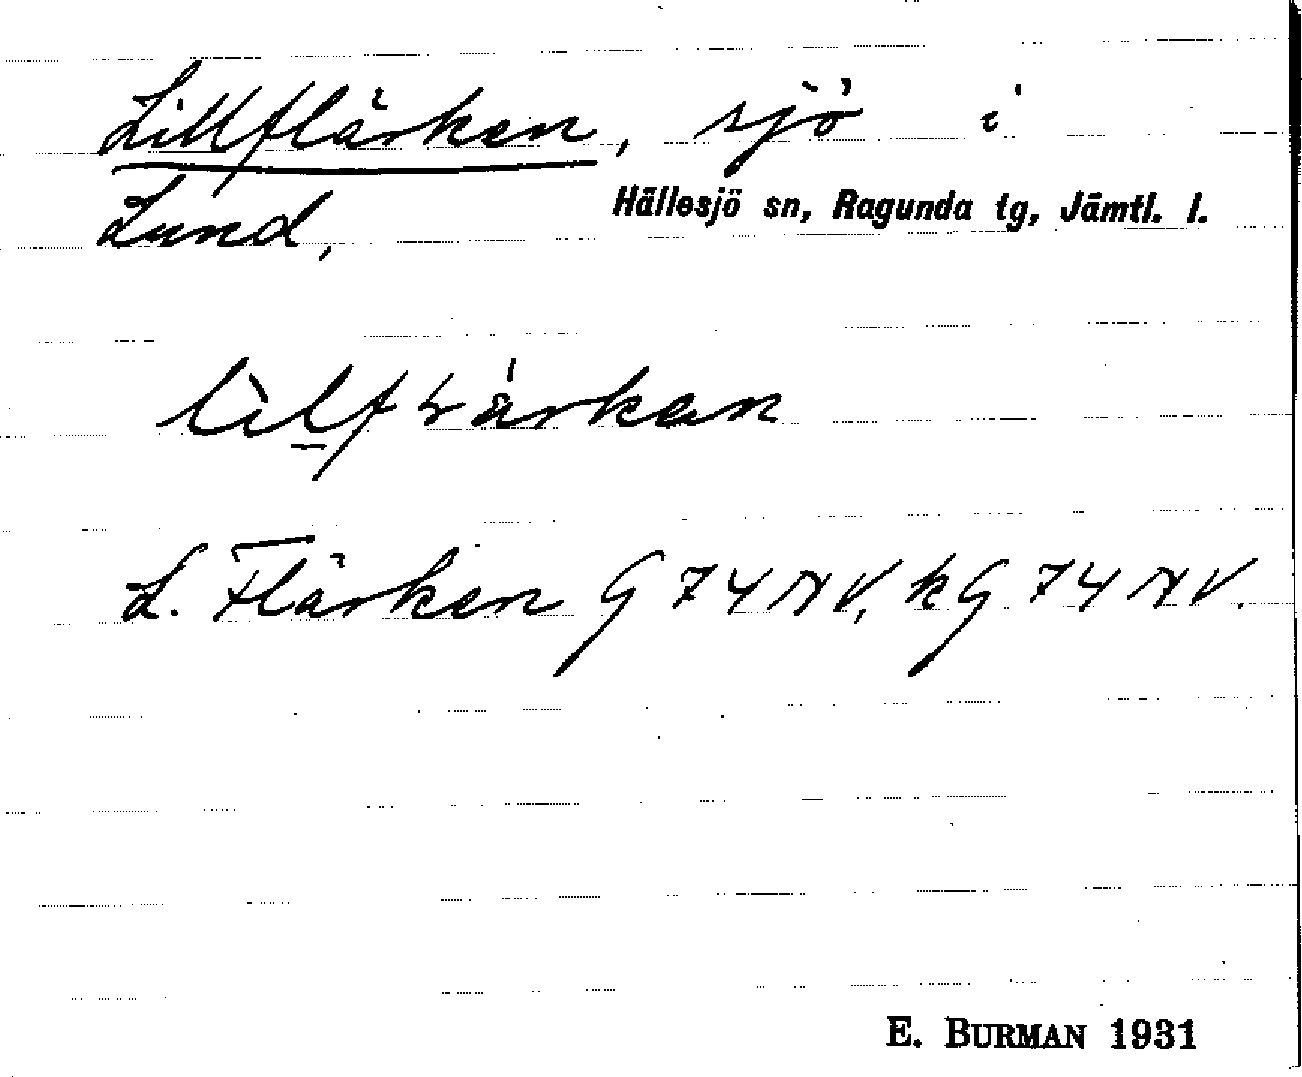 Lillflärken, sjö i
Lund, Hällesjö sn, Ragunda tg, Jämtl. l.
L. Flärken G 74 NV, kG 74 NV.
E. BURMAN 1931